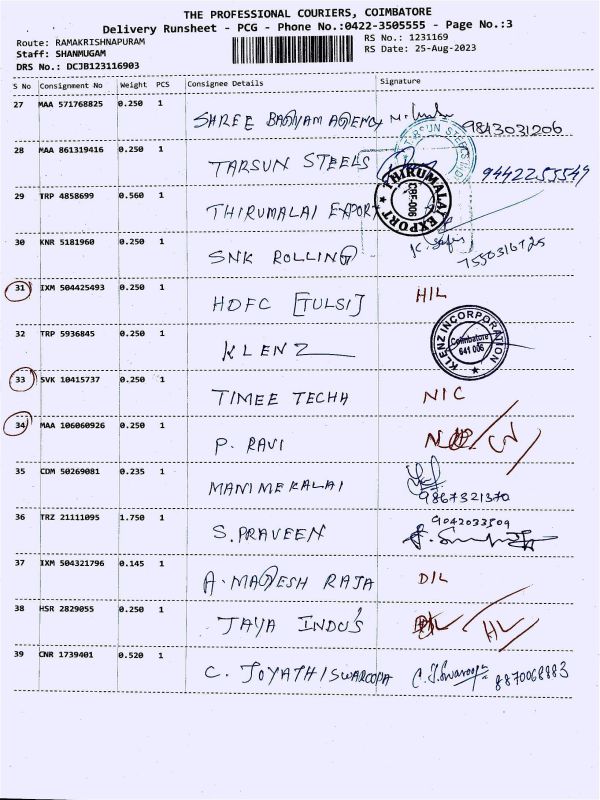 THE PROFESSIONAL COURIERS, COIMBATORE
Delivery Runsheet - PCG - Phone No.:0422-3505555 - Page No.:3
Route: RAMAKRISHNAPURAM
RS No.: 1231169
Staff: SHANMUGAM
RS Date: 25-Aug-2023
DRS No.: DCJB123116903
S No Consignment No Weight PCS Consignee Details Signature
27 MAA 571768825 0.250 1 SHREE BAGYAM AGENCY 9843031206
28 MAA 861319416 0.250 1 TARSUN STEELS TARSUN STEELS 9442255549
29 TRP 4858699 0.560 1 THIRUMALAI EXPORT THIRUMALAI EXPORT CBE-006
30 KNR 5181960 0.250 1 SNK ROLLING
31 IXM 504425493 0.250 1 HDFC [TULSI] HIL
32 TRP 5936845 0.250 1 KLENZ KLENZ INCORPORATION Coimbatore 641 006
33 SVK 10415737 0.250 1 TIMEE TECHH NIC
34 MAA 106060926 0.250 1 P. RAVI
35 CDM 50269081 0.235 1 MANIMEKALAI 9867321370
36 TRZ 21111095 1.750 1 S.PRAVEEN 9042033509
37 IXM 504321796 0.145 1 A. MAGESH RAJA DIL
38 HSR 2829055 0.250 1 JAYA INDU'S HL
39 CNR 1739401 0.520 1 C. JOYATHISWAROOPA C.J.Swaroopa 8870068883